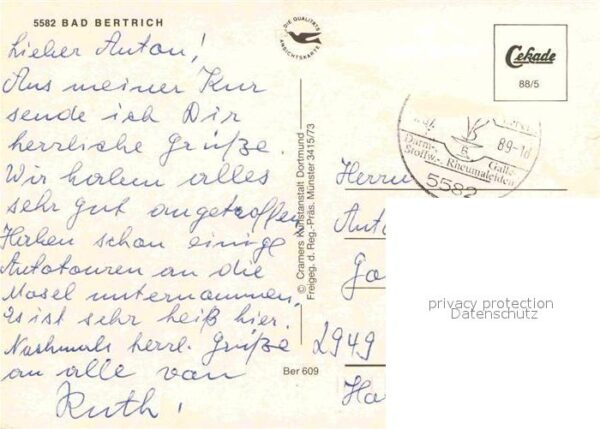 5582 BAD BERTRICH
Lieber Anton!
Aus meiner Kur
sende ich Dir
herrliche Grüße.
Wir haben alles
sehr gut angetroffen,
Haben schon einige
Autotouren an die
Mosel unternommen.
Es ist sehr heiß hier.
Nochmals herrl. Grüße
an alle von
Ruth!
DIE QUALITÄTS
ANSICHTSKARTE
© Cramers Kunstanstalt Dortmund
Freigeg. d. Reg.-Präs. Münster 3415/73
Ber 609
Cekade
88/5
89-18
Darm- Galle-
Stoffw.- Rheumaleiden
5582
Herrn
2949
privacy protection
Datenschutz